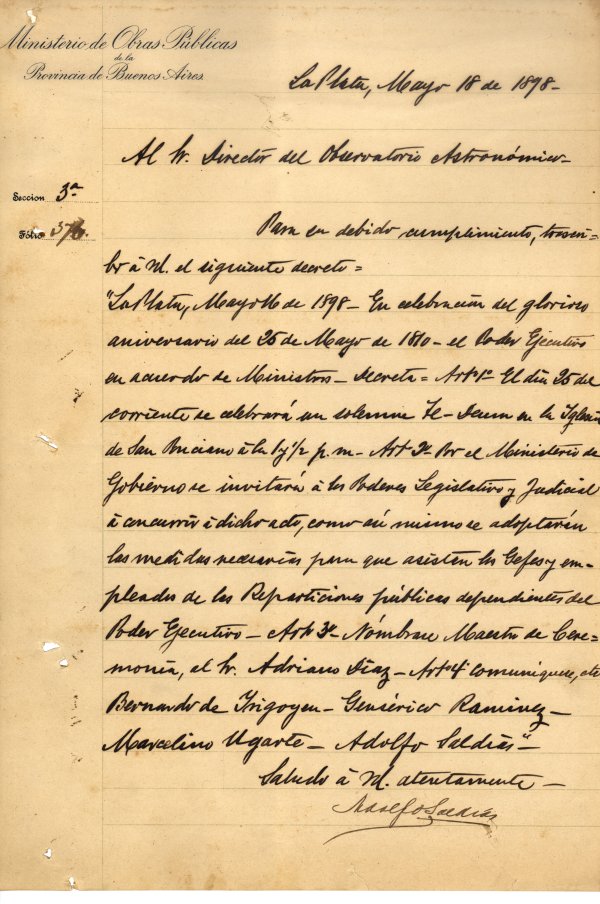 Ministerio de Obras Públicas
de la
Provincia de Buenos Aires
La Plata, Mayo 18 de 1898-
Al Sr. Director del Observatorio Astronómico-
Seccion 3ª
Fólio 376.
Para su debido cumplimiento, trascri-
bo á Vd. el siguiente decreto=
"La Plata, Mayo 16 de 1898- En celebración del glorioso
aniversario del 25 de Mayo de 1810- el Poder Ejecutivo
en acuerdo de Ministros- Decreta= Artº 1º El dia 25 del
corriente se celebrará un solemne Te-Deum en la Iglesia
de San Ponciano á la 1 y 1/2 p.m- Art 2º Por el Ministerio de
Gobierno se invitará á los Poderes Legislativo y Judicial
á concurrir á dicho acto, como asi mismo se adoptarán
las medidas necesarias para que asistan los Gefes y em-
pleados de las Reparticiones públicas dependientes del
Poder Ejecutivo- Art 3º Nómbrase Maestro de Cere-
monia, al Sr. Adriano Díaz- Art 4º Comuníquese, etc
Bernardo de Irigoyen- Gensérico Ramirez-
Marcelino Ugarte- Adolfo Saldías"-
Saludo á Vd. atentamente-
Adolfo Saldías